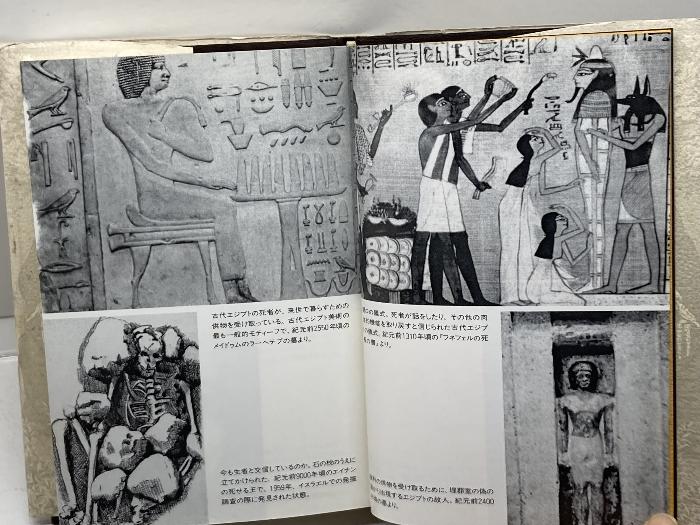 古代エジプトの死者が、来世で暮らすための
供物を受け取っている。古代エジプト美術の
最も一般的モティーフで、紀元前2550年頃の
メイドゥムのラーヘテプの墓より。
今も生者と交信しているのか。石の枕のうえに
立てかけられた、紀元前9000年頃のエイナン
の死せる王で、1959年、イスラエルでの発掘
調査の際に発見された状態。
の儀式、死者が話をしたり、その他の肉
機能を取り戻すと信じられた古代エジプ
の儀式。紀元前1310年頃の「フネフェルの死
の書」より。
の供物を受け取るために、埋葬室の偽の
出現するエジプトの故人。紀元前2400
の墓より。